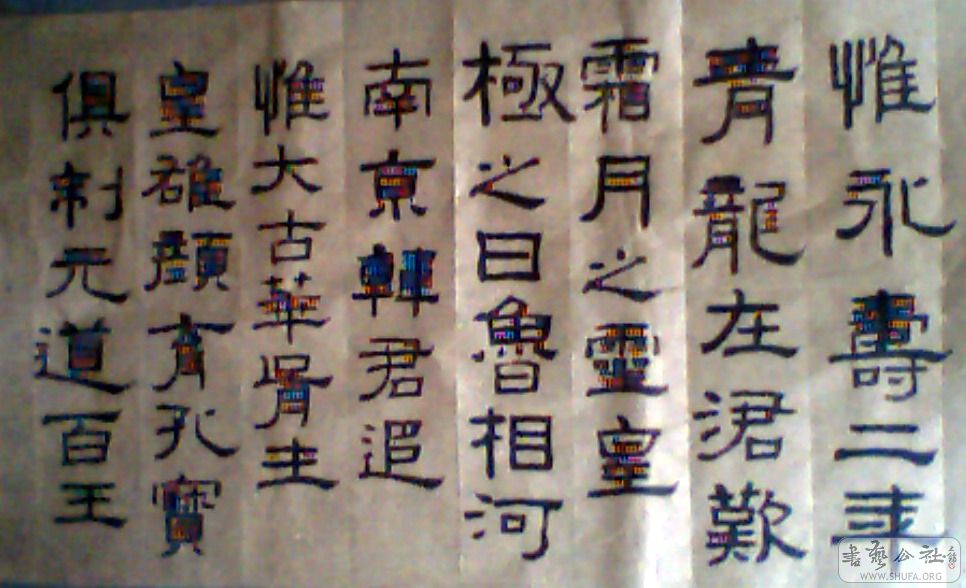 惟永壽二年
青龍在涒歎
霜月之靈皇
極之日魯相河
南京韓君追
惟大古華胥生
皇雄顏育孔寶
俱制元道百王
書藝公社
WWW.SHUFA.ORG